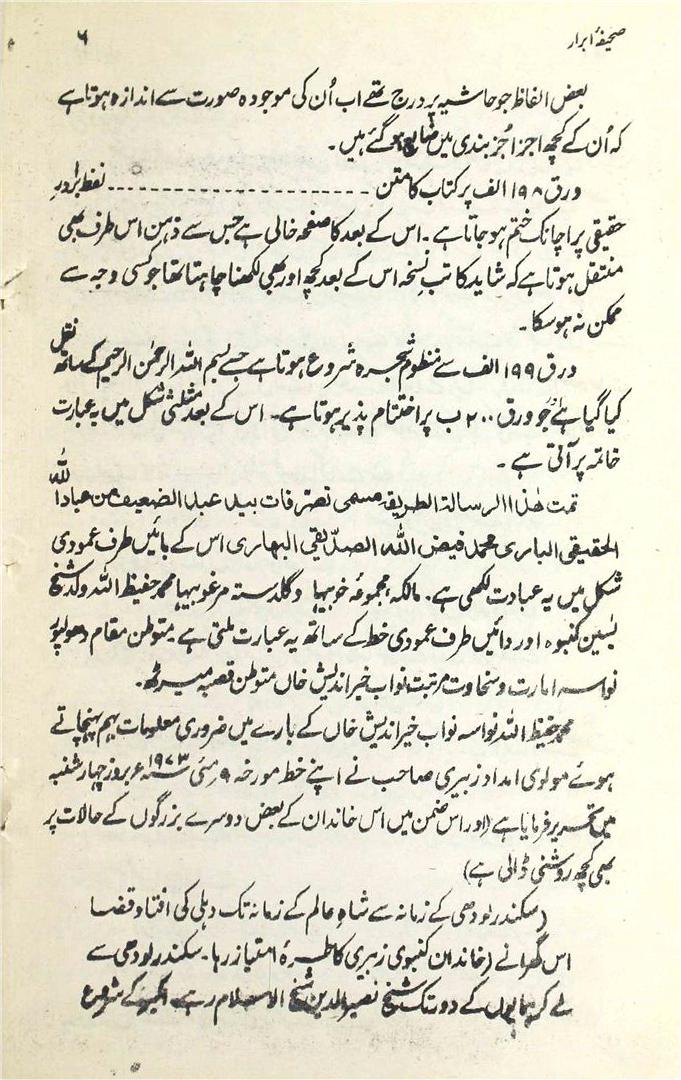 صحیفۂ ابرار
۶
بعض الفاظ جو حاشیہ پر درج تھے اب اُن کی موجودہ صورت سے اندازہ ہوتا ہے
کہ اُن کے کچھ اجزا جُز بندی میں ضایع ہو گئے ہیں۔
ورق ۱۹۸ الف پر کتاب کا متن ---------------- نفط برادرِ
حقیقی پر اچانک ختم ہو جاتا ہے۔ اس کے بعد کا صفحہ خالی ہے جس سے ذہن اس طرف بھی
منتقل ہوتا ہے کہ شاید کاتب نسخہ اس کے بعد کچھ اور بھی لکھنا چاہتا تھا جو کسی وجہ سے
ممکن نہ ہو سکا۔
ورق ۱۹۹ الف سے منظوم شجرہ شروع ہوتا ہے جسے بسم اللہ الرحمٰن الرحیم کے ساتھ نقل
کیا گیا ہے اور جو ورق ۲۰۰ ب پر اختتام پذیر ہوتا ہے۔ اس کے بعد مثلثی شکل میں یہ عبارت
خاتمہ پر آتی ہے۔
تمت ھٰذا الرسالۃ الطریقہ مسمی تصرفات بید عبد الضعیف من عباد اللہ
الحقیقی الباری محمد فیض اللہ الصدّیقی البھاری اس کے بائیں طرف عمودی
شکل میں یہ عبارت لکھی ہے۔ مالکہٗ مجموعۂ خوبیہا و گلدستہ مرغوبیہا محمد حفیظ اللہ ولد شیخ
یٰسین کنبوہ اور دائیں طرف عمودی خط کے ساتھ یہ عبارت ملتی ہے۔ متوطن مقام دھولپور
نواسہ امارت و سخاوت مرتبت نواب خیر اندیش خاں متوطن قصبہ میرٹھ۔
محمد حفیظ اللہ نواسہ نواب خیر اندیش خاں کے بارے میں ضروری معلومات بہم پہنچاتے
ہوئے مولوی امداد زبیری صاحب نے اپنے خط مورخہ ۹ مئی سنہ ۱۹۷۳ء بروز چہار شنبہ
میں تحریر فرمایا ہے (اور اس ضمن میں اس خاندان کے بعض دوسرے بزرگوں کے حالات پر
بھی کچھ روشنی ڈالی ہے)
(سکندر لودھی کے زمانہ سے شاہ عالم کے زمانہ تک دہلی کی افتا و قضا
اس گھرانے (خاندان کنبوی زبیری کا طرۂ امتیاز رہا۔ سکندر لودھی سے
لے کر ہمایوں کے دور تک شیخ نصیر الدین شیخ الاسلام رہے۔ اکبر کے شروع